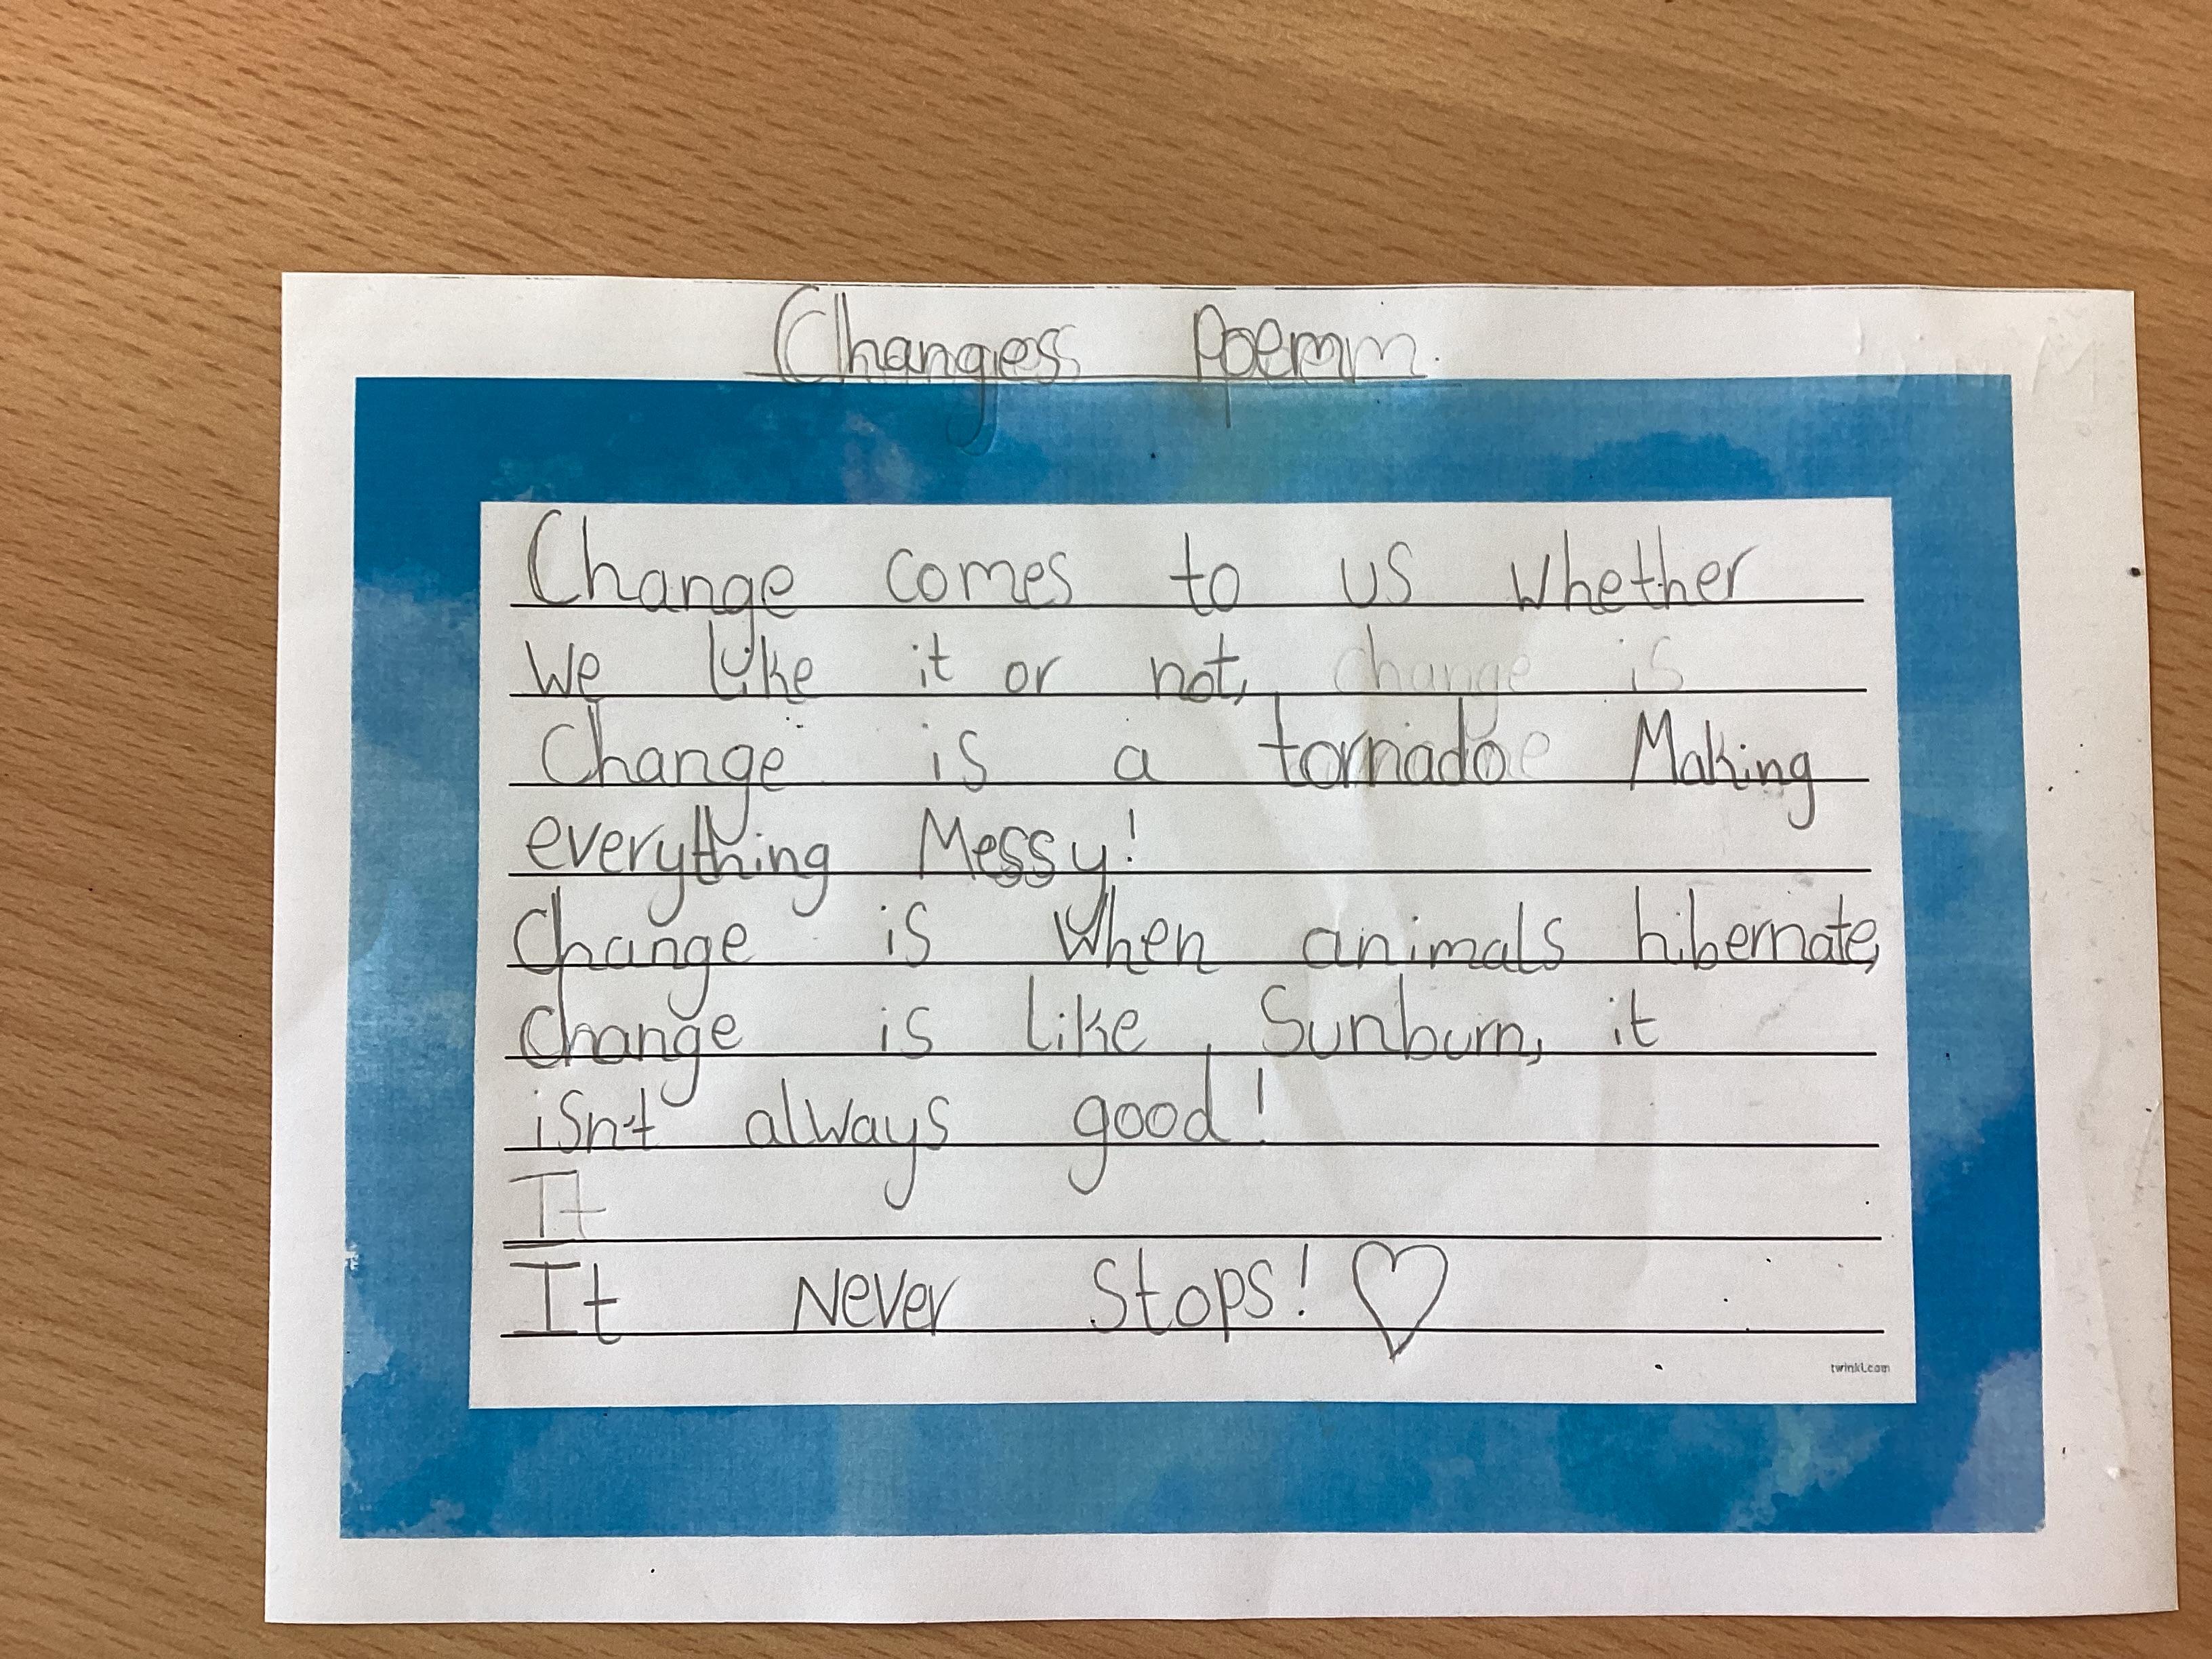 Changes Poem
Change comes to us whether
We like it or not,
Change is a tornado Making
everything Messy!
Change is When animals hibernate,
Change is like Sunburn, it
isn't always good!
It
It Never Stops! ♡
twinkl.com